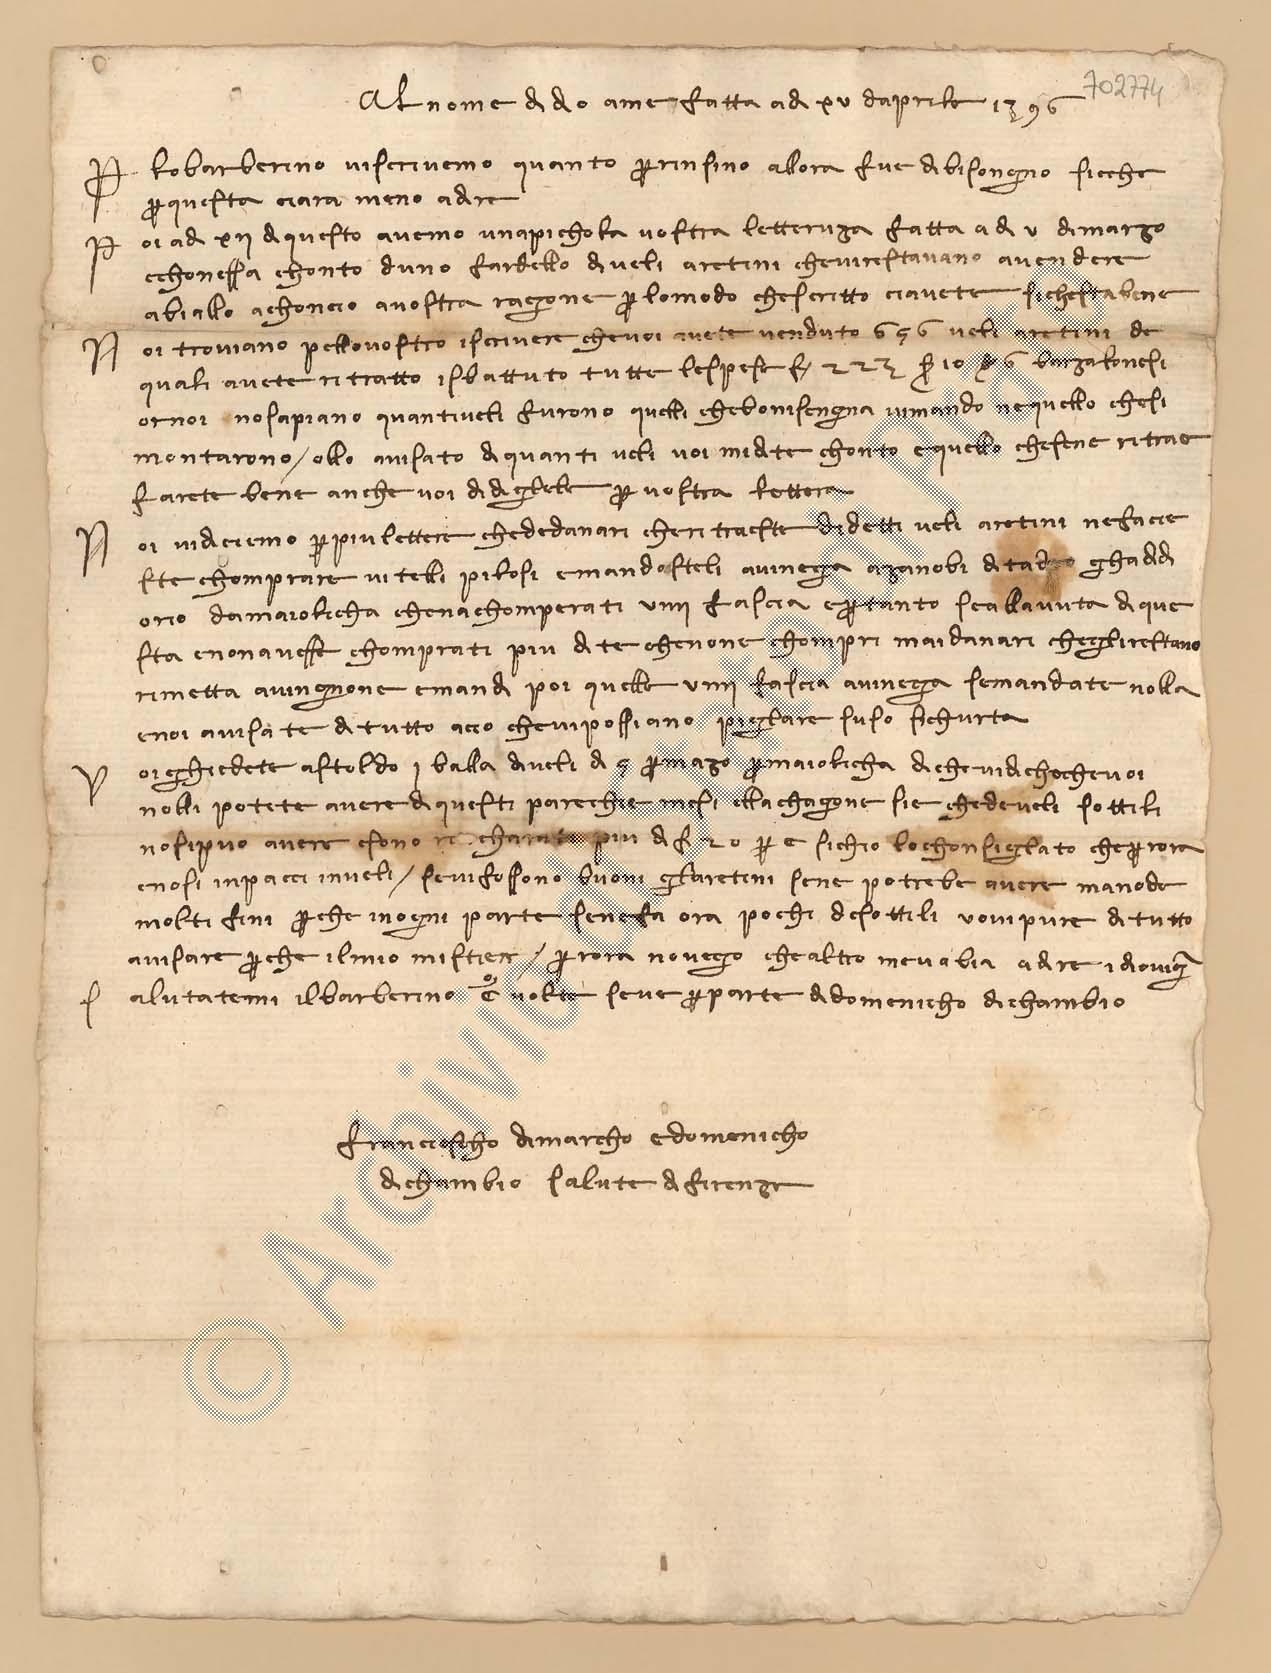 702774
Al nome di dio ame fatta adi xv daprile 1396
P lo barberino vi scrivemo quanto per insino allora fue di bisongno sicche
per questa ciara meno adire
P oi adi xii di questo avemo una pichola vostra letteruza fatta adi v di marzo
cchonessa chonto duno fardello di veli aretini che vi restavano a vendere
abiallo achoncio a vostra ragone per lo modo che scritto ciavete siche sta bene
N oi troviano pello vostro iscrivere che voi avete venduto 656 veli aretini de
quali avete ritratto isbattuto tutte le spese 223 s 10 d 6 barzalonesi
or noi no sapiano quanti veli furono quelli che bonisengna vi mando ne quello che si
montarono / ollo avisato di quanti veli voi mi date chonto e quello che sene ritrae
farete bene anche voi di digliele per vostra lettera
N oi vi diciemo per piu lettere che de danari che ritraeste di detti veli aretini ne facie
ste chomprare vitelli pilosi e mandosteli a vinega a zanobi di tadeo ghaddi
orio da maiolicha che na chomperati viiii fascia e per tanto se alla vuta di que
sta e non avesse chomprati piu dite che none chompri mai danari che gli restano
rimetta a vingnone e mandi poi quelle viiii fascia a vinega se mandate nolla
e noi avisate di tutto acio che vi possiano pigliare suso sichurta
V oi chiedete a stoldo 1 balla di veli di 5 per mazo per maiolicha di che vi dicho che voi
nolli potete avere di questi parechie mesi ella chagone sie che de veli sottili
no si puo avere e sono richarato piu di f 20 per c si chio lo chonsigliato che per ora
e no si inpacci in veli / se vi fossono buoni gli aretini sene potrebe avere manode
molti fini per che in ogni parte sene fa ora pochi de sottili vomi pure di tutto
avisare per che il mio mistiere / per ora no vego che altro meva bia a dire idio vi guardi
S alutatemi il barberino c volte se ve per parte di domenicho di chambio
franciescho di marcho e domenicho
di chambio salute di firenze
© Archivio di